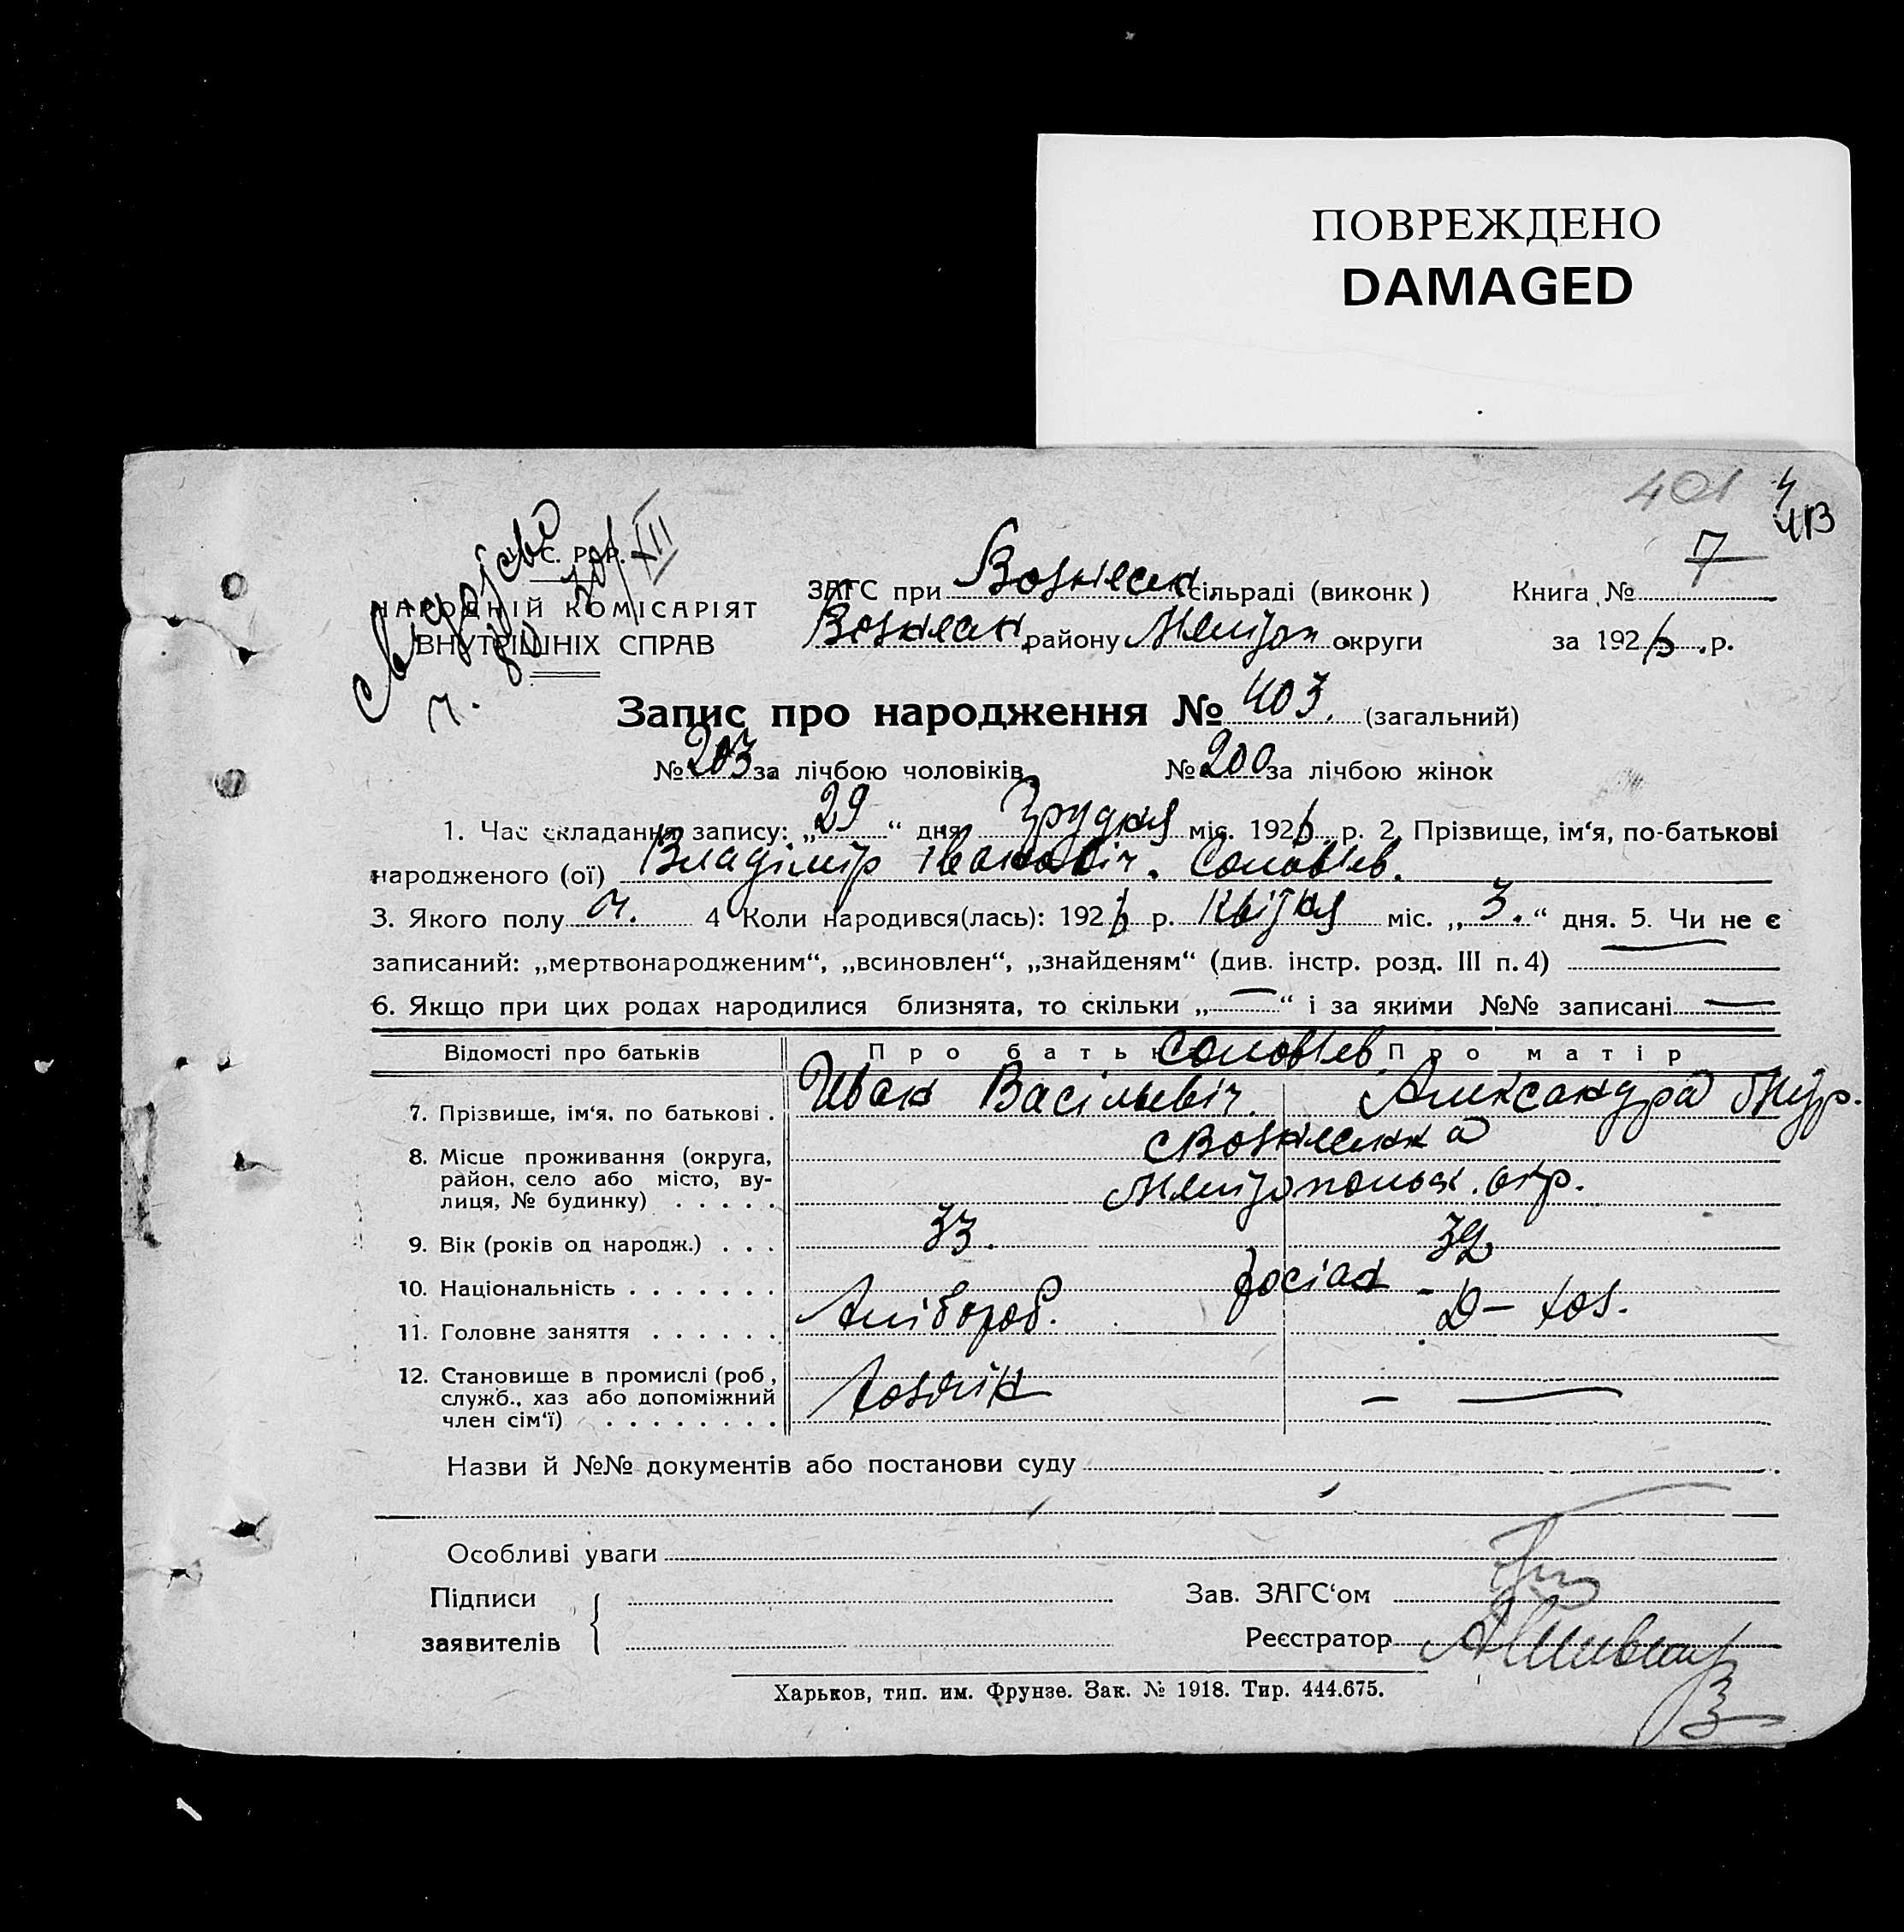 ПОВРЕЖДЕНО
DAMAGED
401
У.С.Р.Р.
XII
НАРОДНІЙ КОМІСАРІЯТ
ВНУТРІШНІХ СПРАВ
ЗАГС при Вознесен. сільраді (виконк)
Книга № 7
Вознесен. району Мелітоп. округи
за 1926 р.
Запис про народження № 403. (загальний)
№ 203 за лічбою чоловіків № 200 за лічбою жінок
1. Час складання запису: „29“ дня Грудня міс. 1926 р. 2. Прізвище, ім‘я, по-батькові
народженого (ої) Владімір Іванович. Соловьев.
3. Якого полу ч. 4 Коли народився(лась): 1926 р. Квітня міс. „3.“ дня. 5. Чи не є
записаний: „мертвонародженим“, „всиновлен“, „знайденям“ (див. інстр. розд. III п. 4)
6. Якщо при цих родах народилися близнята, то скільки „—“ і за якими №№ записані —
Відомості про батьків Про батька Соловьев Про матір
7. Прізвище, ім‘я, по батькові . Иван Васільевіч. Александра
8. Місце проживання (округа, район, село або місто, вулиця, № будинку) . . . . . с Вознесенка
Мелітопольск. окр.
9. Вік (років од народж.) . . . 33. 32
10. Національність . . . . . . . росіян
11. Головне заняття . . . . . . Хлібороб. Д— хоз.
12. Становище в промислі (роб, служб., хаз або допоміжний член сім‘ї) . . . . . . . . хозяїн — —
Назви й №№ документів або постанови суду
Особливі уваги
Підписи
заявителів
Зав. ЗАГС‘ом
Реєстратор
Харьков, тип. им. Фрунзе. Зак. № 1918. Тир. 444.675.